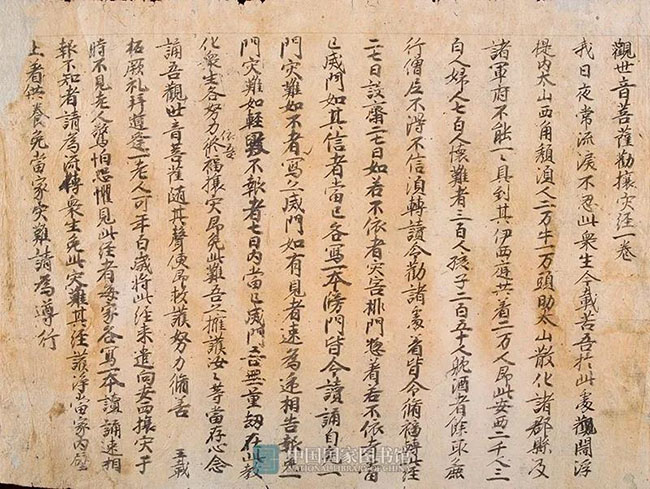 觀世音菩薩勸攘灾經一卷
我日夜常流淚不忍此衆生今載苦吾於此處觀閻浮
提內太山西角頹湏人二万牛一万頭助太山散化諸郡縣及
諸軍府不能一一具到其伊西庭共着二万人
百人婦人七百人懷難者三百人孩子二百五十人
行僧尼不淂不信湏轉讀令勸諸處着皆令脩福轉經
二七日設齋二七日如若不依者灾害排門惣着若不依者當
已滅門如其信者當已各寫一本傍門皆令讀誦自
門灾難如不者寫亦滅門如有見者速爲遞相告報
門灾難如輕不報者七日內當已滅門吾無量劫在此教
化衆生各努力依吾脩福攘灾即免此難吾亦擁護汝汝等當存心念
誦吾觀世音菩薩隨其聲便即救護努力脩善 五載
柘厥礼拜道愛一老人可年百歲將此經來遣向安西攘灾于
時不見老人驚怕恐懼見此經者每家各寫一本讀誦遞相
報下知者請爲流轉衆生免此灾難其經護淨當家內壁
上着供養免當家灾難請爲遵行
中国国家图书馆
NATIONAL LIBRARY OF CHINA